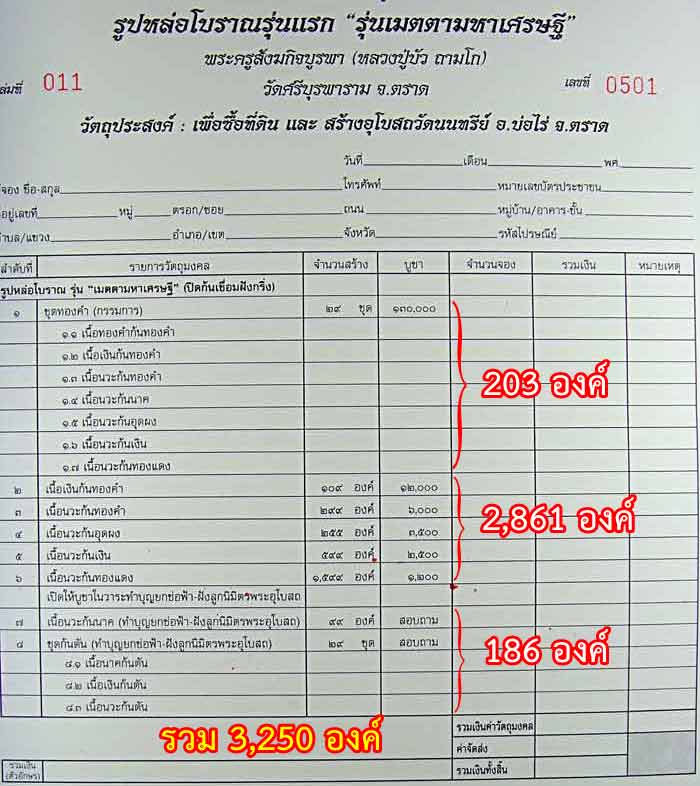 รูปหล่อโบราณรุ่นแรก “รุ่นเมตตามหาเศรษฐี”
พระครูสังฆกิจบูรพา (หลวงปู่บัว ถามโก)
ล่มที่ 011 วัดศรีบุรพาราม จ.ตราด เลขที่ 0501
วัตถุประสงค์ : เพื่อซื้อที่ดิน และ สร้างอุโบสถวัดนนทรีย์ อ.บ่อไร่ จ.ตราด
วันที่ เดือน พศ.
จอง ชื่อ-สกุล โทรศัพท์ หมายเลขบัตรประชาชน
อยู่เลขที่ หมู่ ตรอก/ซอย ถนน หมู่บ้าน/อาคาร-ชั้น
ำบล/แขวง อำเภอ/เขต จังหวัด รหัสไปรษณีย์
ลำดับที่ รายการวัตถุมงคล จำนวนสร้าง บูชา จำนวนจอง รวมเงิน หมายเหตุ
รูปหล่อโบราณ รุ่น “เมตตามหาเศรษฐี” (ปิดก้นเชื่อมฝังกริ่ง)
๑ ชุดทองคำ (กรรมการ) ๒๙ ชุด ๑๓๐,๐๐๐
๑.๑ เนื้อทองคำก้นทองคำ
๑.๒ เนื้อเงินก้นทองคำ
๑.๓ เนื้อนวะก้นทองคำ
203 องค์
๑.๔ เนื้อนวะก้นนาค
๑.๕ เนื้อนวะก้นอุดผง
๑.๖ เนื้อนวะก้นเงิน
๑.๗ เนื้อนวะก้นทองแดง
๒ เนื้อเงินก้นทองคำ ๑๐๙ องค์ ๑๒,๐๐๐
๓ เนื้อนวะก้นทองคำ ๒๙๙ องค์ ๖,๐๐๐
2,861 องค์
๔ เนื้อนวะก้นอุดผง ๒๕๕ องค์ ๓,๕๐๐
๕ เนื้อนวะก้นเงิน ๕๙๙ องค์ ๒,๕๐๐
๖ เนื้อนวะก้นทองแดง ๑,๕๙๙ องค์ ๑,๒๐๐
เปิดให้บูชาในวาระทำบุญยกช่อฟ้า-ฝังลูกนิมิตรพระอุโบสถ
๗ เนื้อนวะก้นนาค (ทำบุญยกช่อฟ้า-ฝังลูกนิมิตรพระอุโบสถ) ๙๙ องค์ สอบถาม
๘ ชุดก้นตัน (ทำบุญยกช่อฟ้า-ฝังลูกนิมิตรพระอุโบสถ) ๒๙ ชุด สอบถาม
186 องค์
๘.๑ เนื้อนาคก้นตัน
๘.๒ เนื้อเงินก้นตัน
๘.๓ เนื้อนวะก้นตัน
รวม 3,250 องค์
รวมเงินค่าวัตถุมงคล
ค่าจัดส่ง
รวมเงิน (ตัวอักษร) รวมเงินทั้งสิ้น